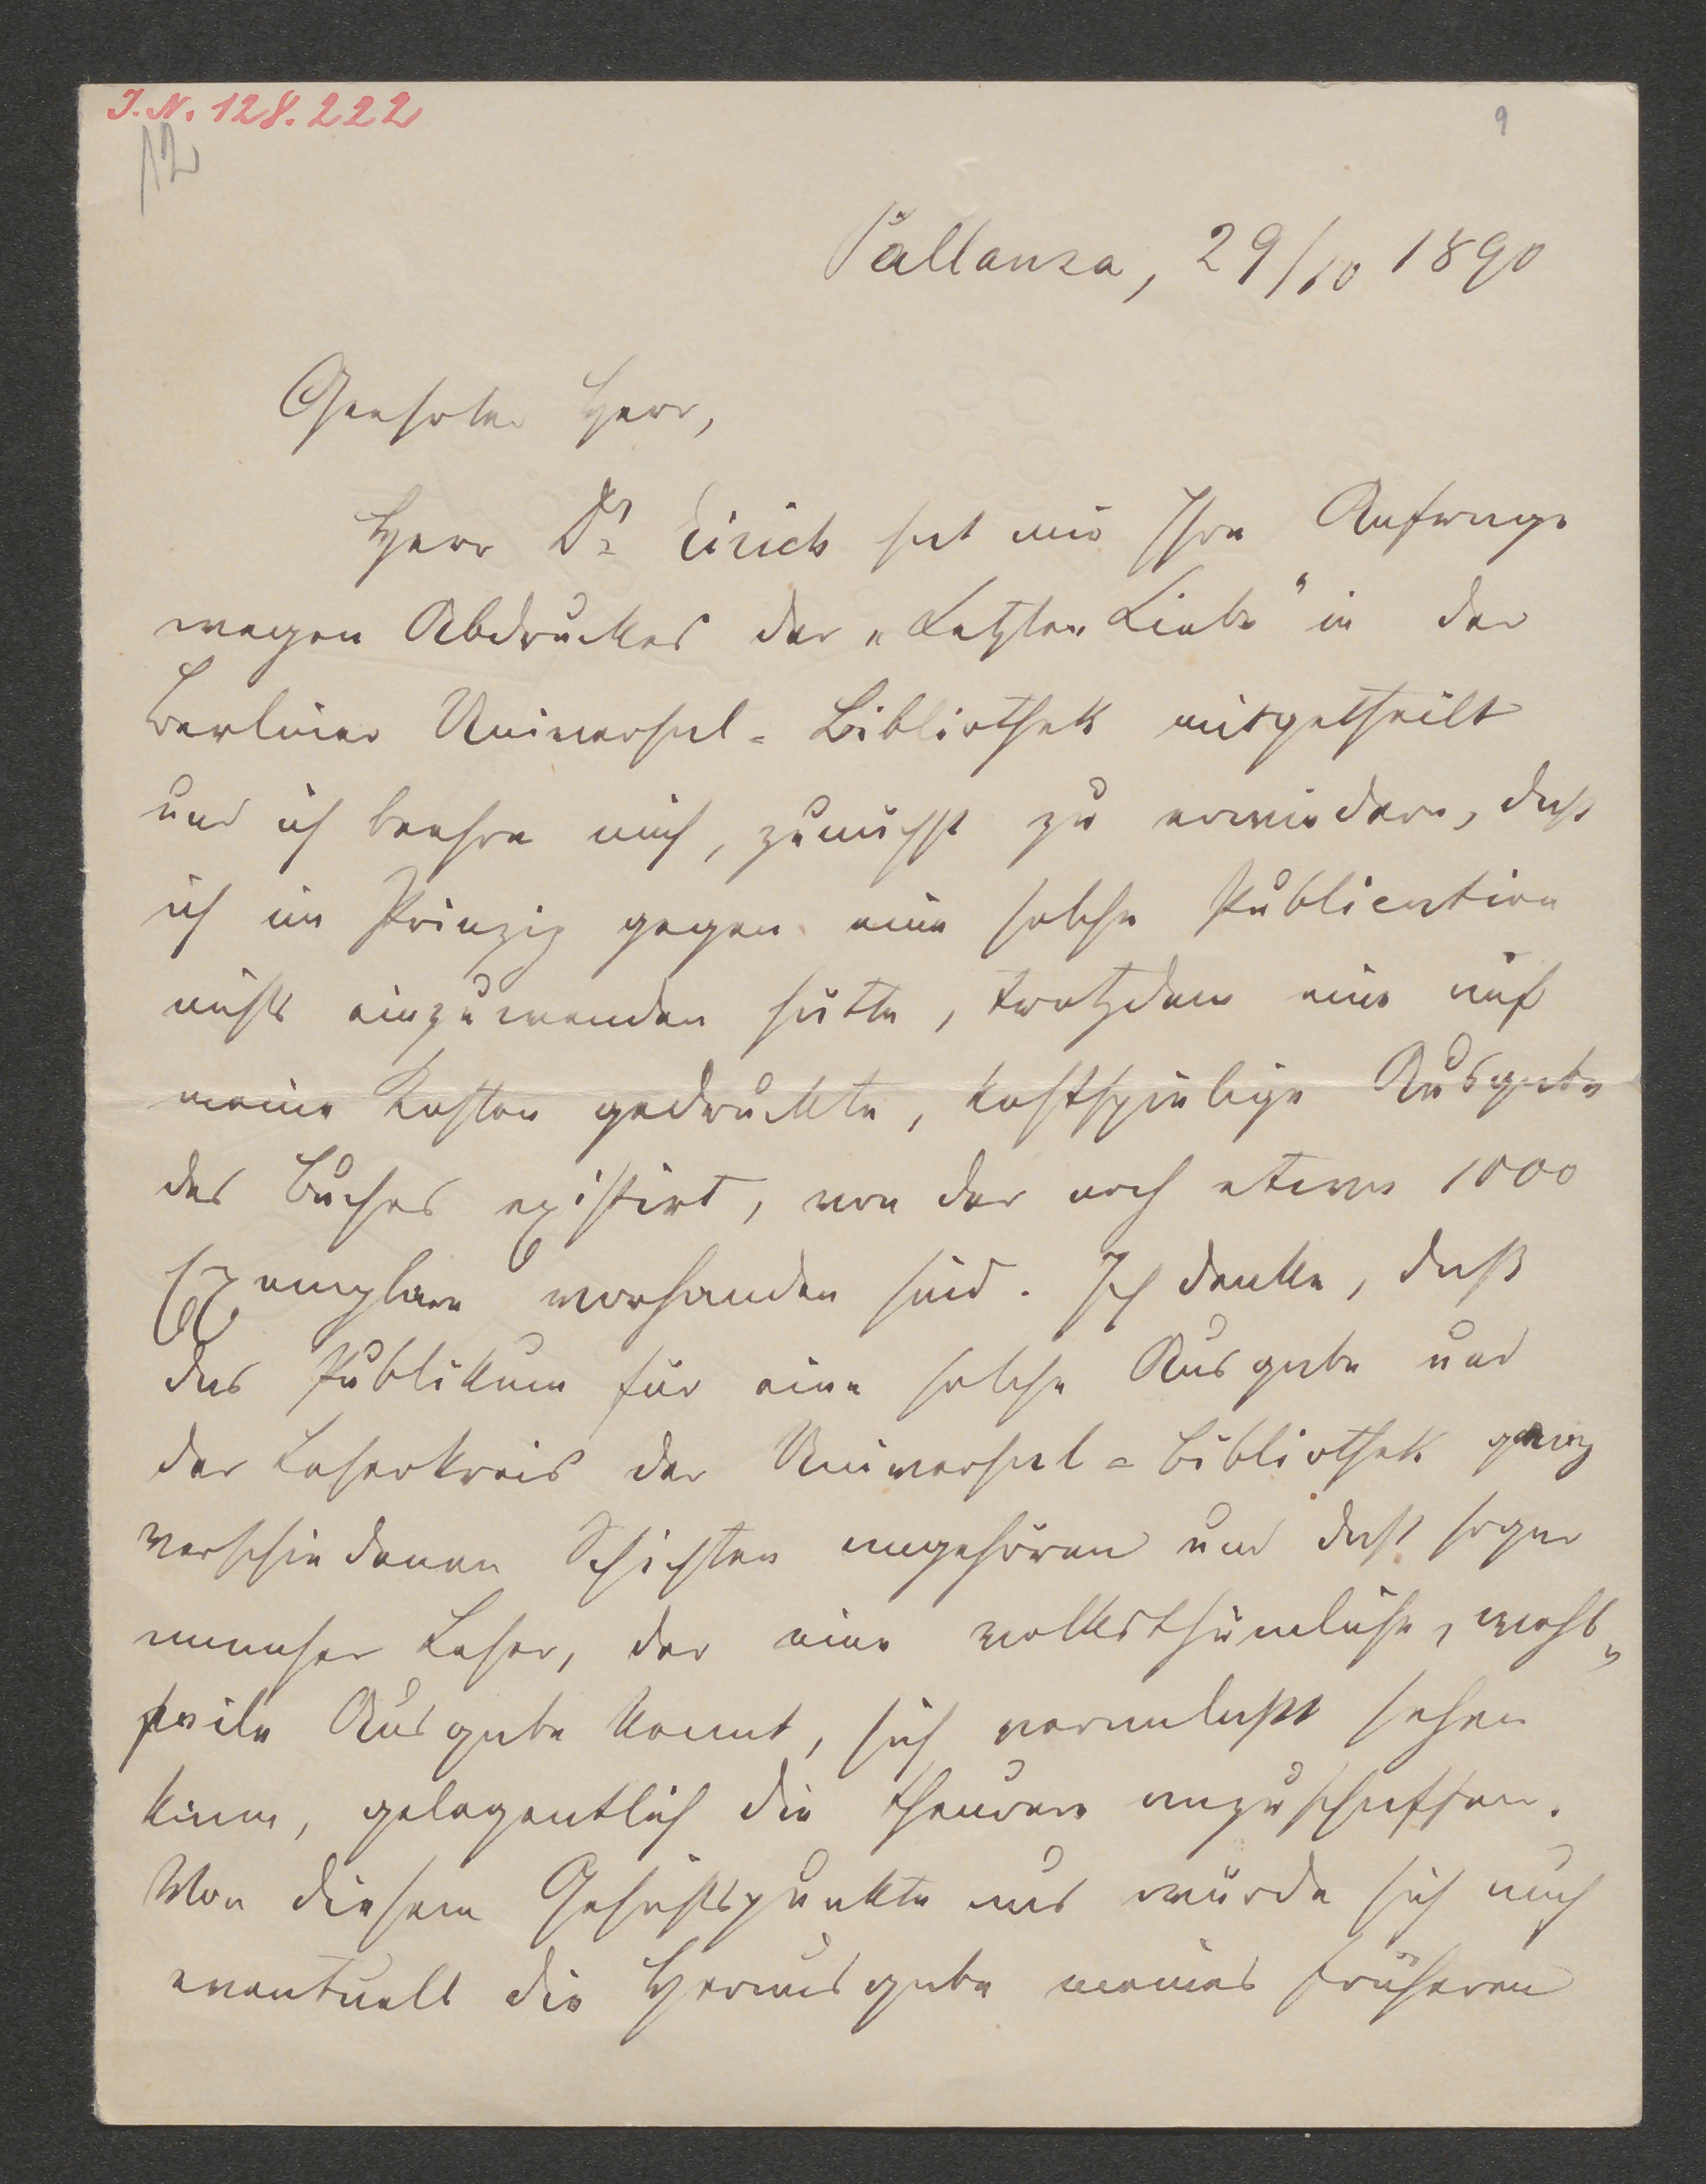 J.N. 128.222
12
9
Pallanza, 29/10 1890
Geehrter Herr,
Herr Dr Eirich hat mir Ihre Anfrage
wegen Abdruckes der „Letzten Liebe" in der
Berliner Universal-Bibliothek mitgetheilt
und ich beehre mich, zunächst zu erwiedern, daß
ich im Prinzip gegen eine solche Publication
nichts einzuwenden hätte, trotzdem eine auf
meine Kosten gedruckte, kostspielige Ausgabe
des Buches existirt, von der noch etwa 1000
Exemplare vorhanden sind. Ich denke, daß
das Publikum für eine solche Ausgabe und
der Leserkreis der Universal-Bibliothek ganz
verschiedenen Schichten angehören und daß sogar
mancher Leser, der eine volksthümliche, wohl-
feile Ausgabe kennt, sich veranlaßt sehen
kann, gelegentlich die theurere anzuschaffen.
Von diesem Gesichtspunkte aus würde sich auch
eventuell die Herausgabe meines früheren